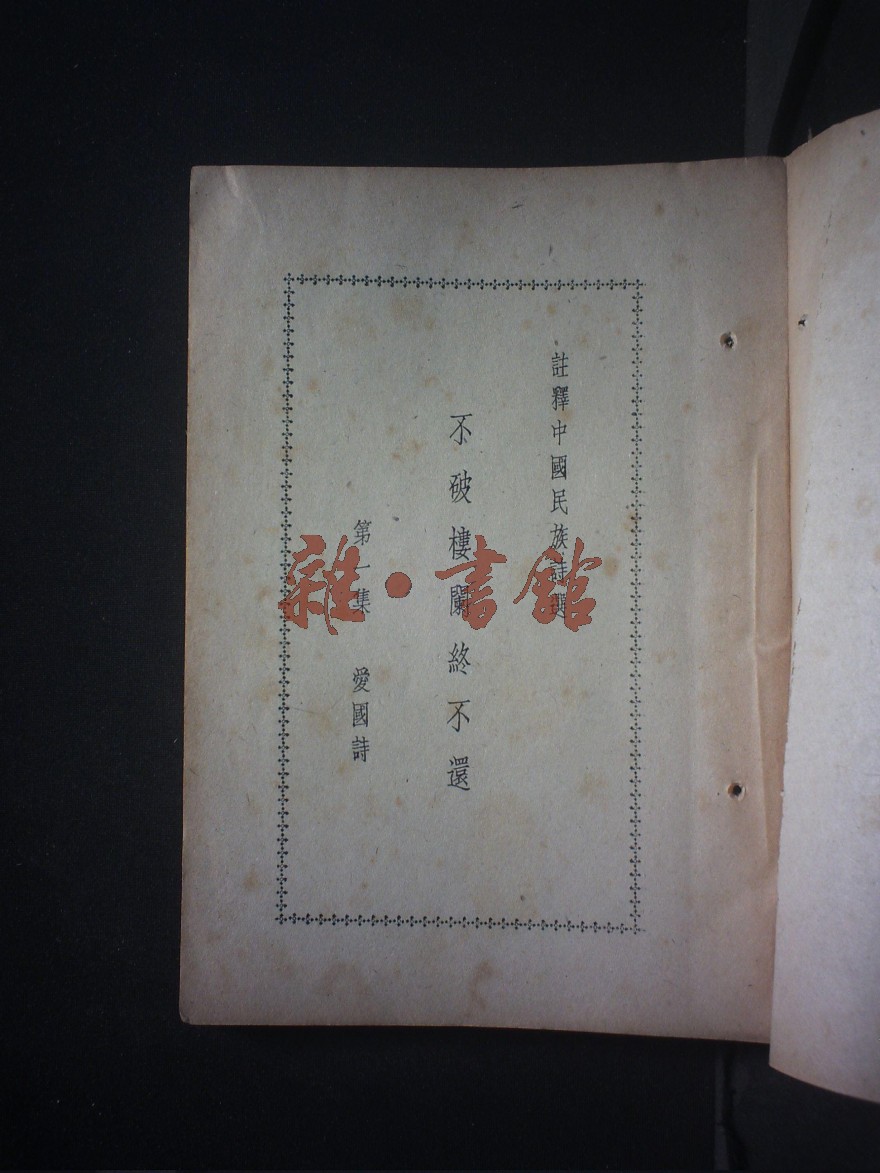 註釋中國民族詩選
不破樓闌終不還
第一集 愛國詩
雜·書館